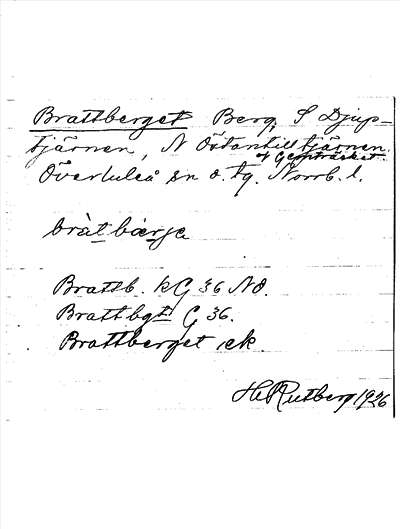 Brattberget Berg, S Djup-
tjärnen, N Östantilltjärnen
o Gepptäsket.
Överluleå sn o. tg. Norrb. l.
bràt bærje
Brattb. kG 36 NO.
Brattbgt G 36.
Brattberget ek.
H Rutberg 1926